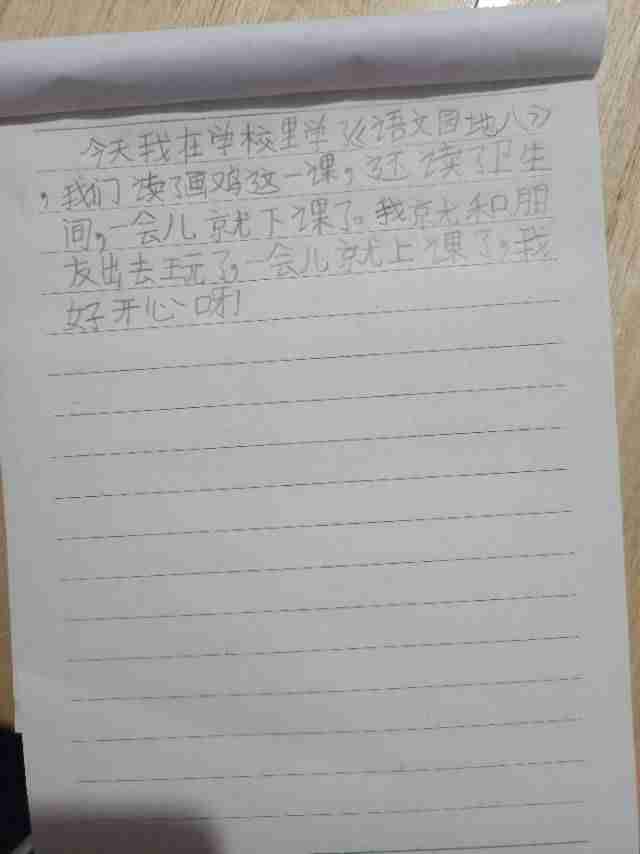 今天我在学校里学了《语文园地八》
,我们读了画鸡这一课,还读了卫生
间,一会儿就下课了。我就和朋
友出去玩了,一会儿就上课了,我
好开心呀!